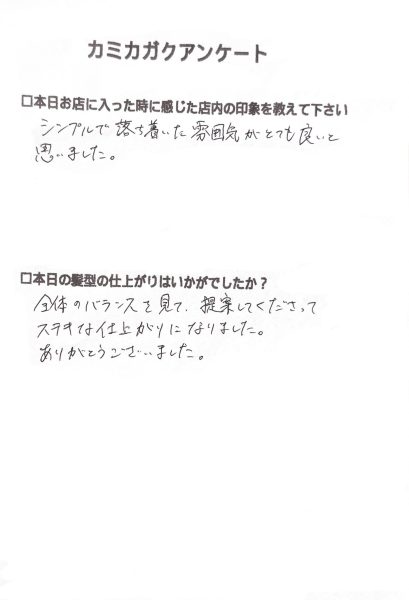 カミカガクアンケート
□本日お店に入った時に感じた店内の印象を教えて下さい
シンプルで落ち着いた雰囲気がとても良いと
思いました。
□本日の髪型の仕上がりはいかがでしたか？
全体のバランスを見て、提案してくださって
ステキな仕上がりになりました。
ありがとうございました。